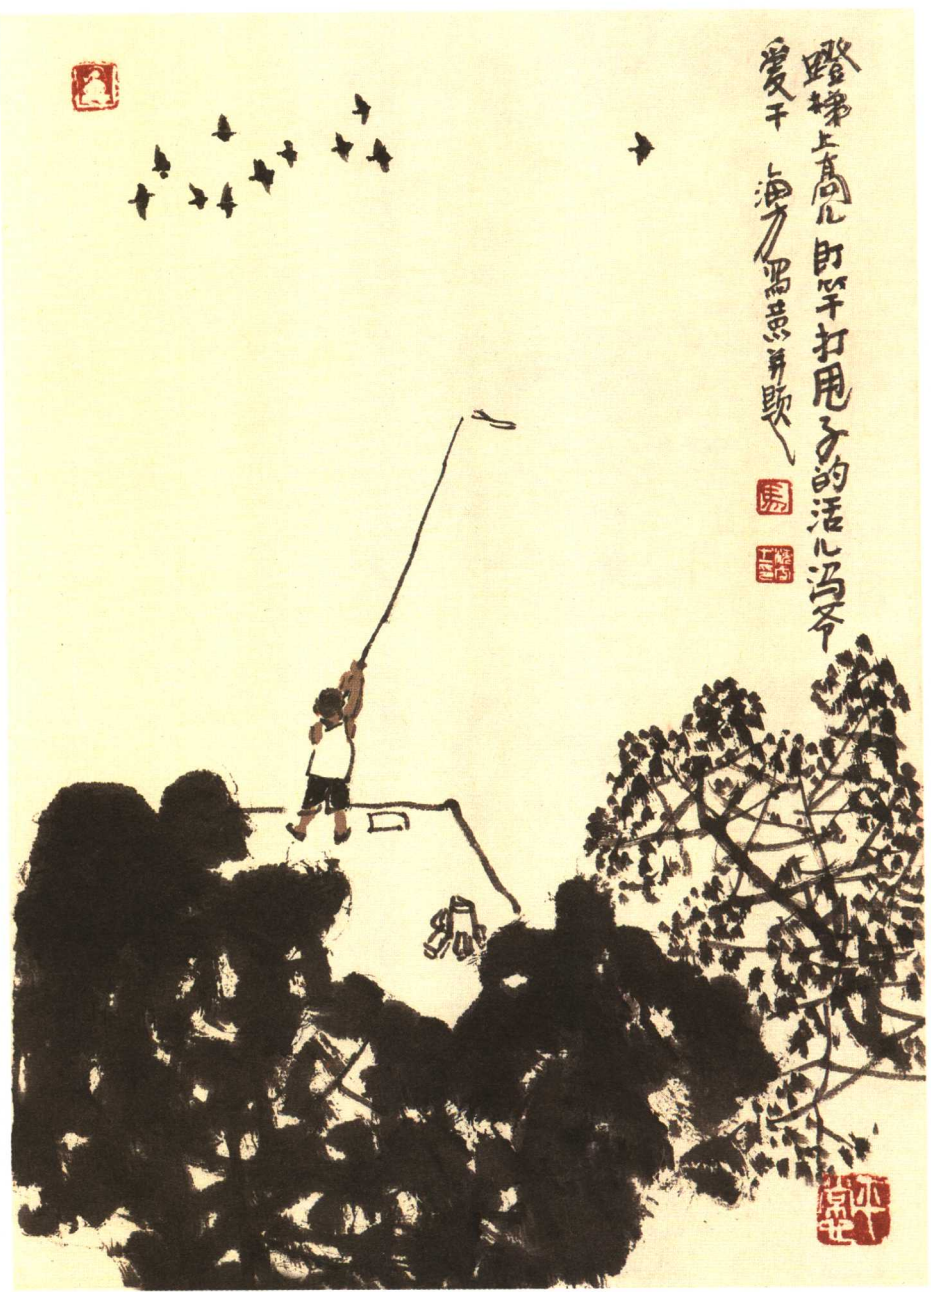 蹬梯上高儿盯竿打甩子的活儿冯爷
爱干 海方写意并题
馬
平常心